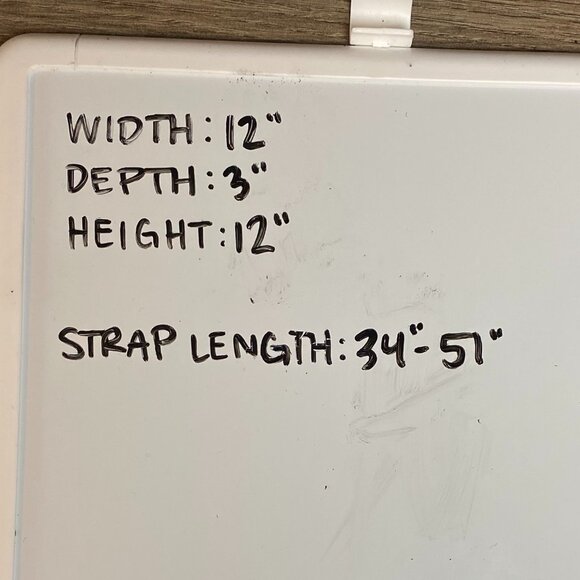 WIDTH: 12"
DEPTH: 3"
HEIGHT: 12"
STRAP LENGTH: 34"- 51"